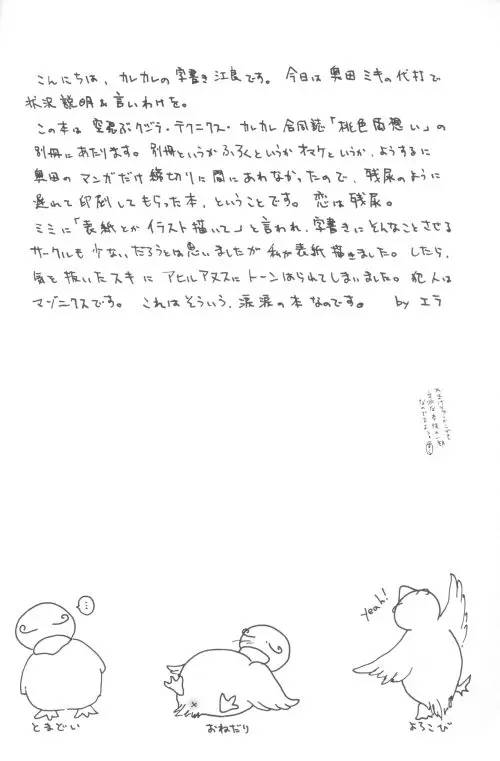 こんにちは、カレカレの字書き江良です。今日は奥田ミキの代打で
状況説明&言いわけを。
この本は空飛ぶクジラ・テクニクス・カレカレ合同誌「桃色片想い」の
別冊にあたります。別冊というかふろくというかオマケというか、ようするに
奥田のマンガだけ締切りに間にあわなかったので、残尿のように
遅れて印刷してもらった本、ということです。恋は残尿。
ミミに「表紙とかイラスト描いて」と言われ、字書きにそんなことさせる
サークルも少ないだろうとは思いましたが私が表紙描きました。したら、
気を抜いたスキにアヒルアヌスにトーンはられてしまいました。犯人は
マゾニクスです。これはそういう、涙涙の本なのです。 by エラ
…
Yeah!
とまどい
おねだり
よろこび